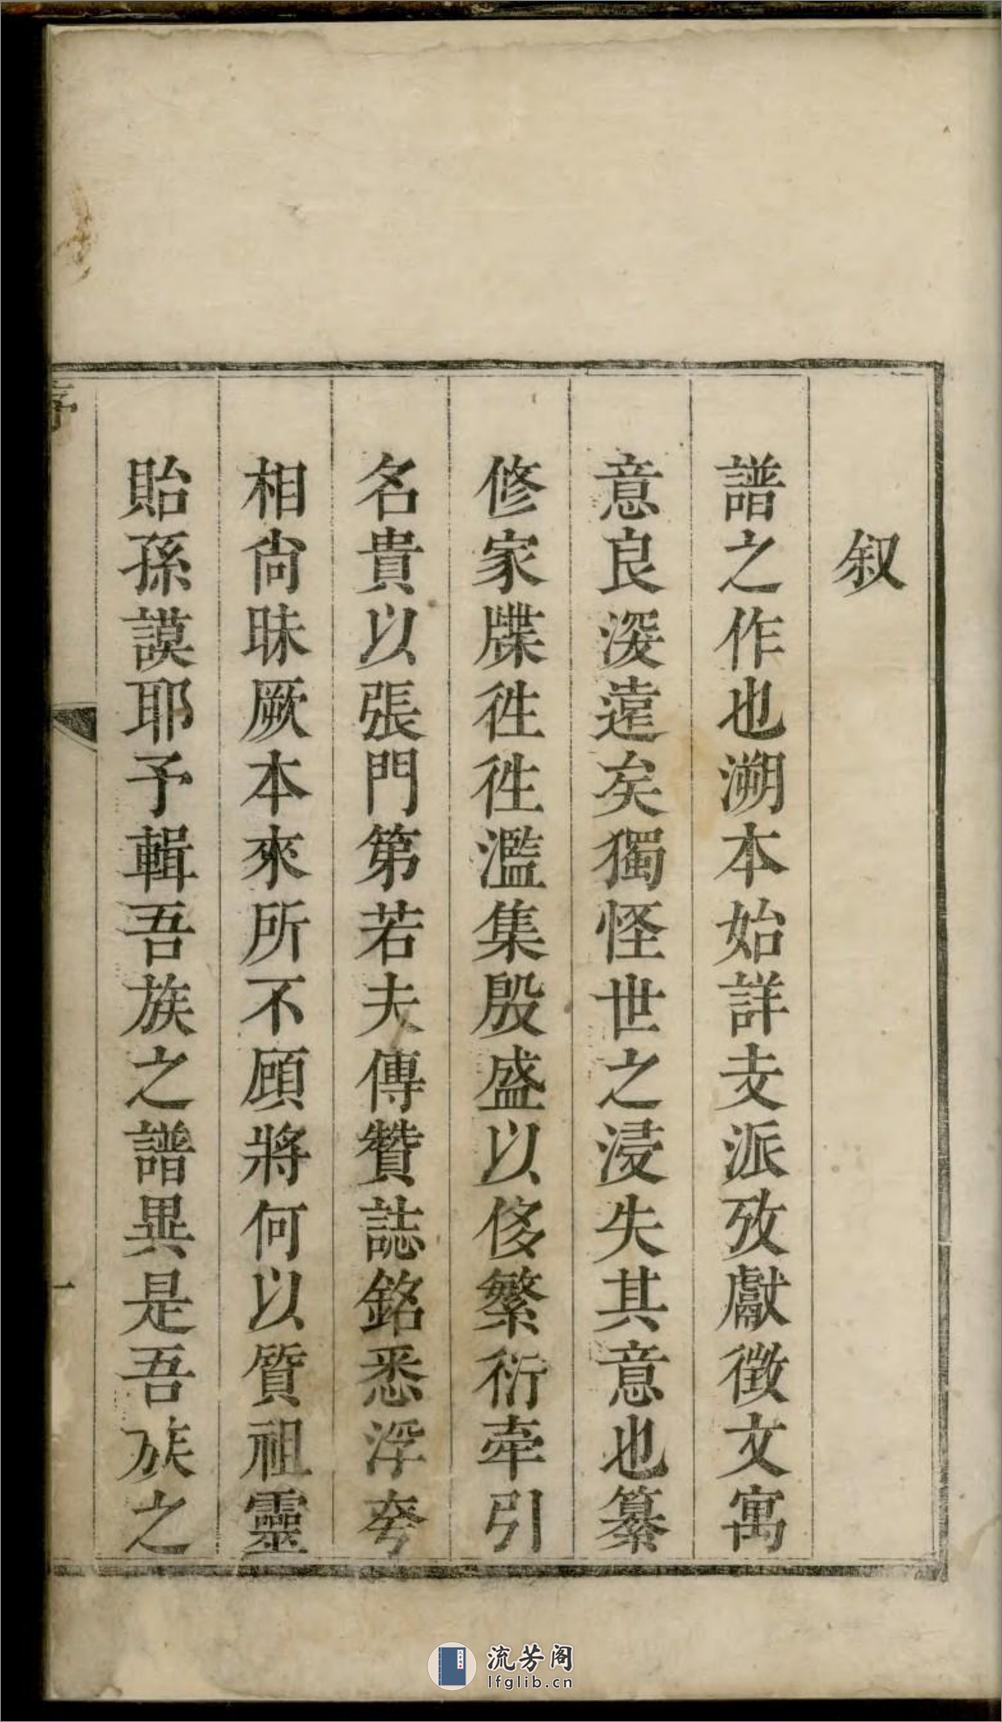 叙
譜之作也溯本始詳支派攷獻徵文寓
意良深遠矣獨怪世之浸失其意也纂
修家牒徃徃濫集殷盛以侈繁衍牽引
名貴以張門第若夫傳贊誌銘悉浮夸
相尙昧厥本來所不顧將何以質祖靈
貽孫謨耶予輯吾族之譜異是吾族之
序
一
流芳阁
lfglib.cn